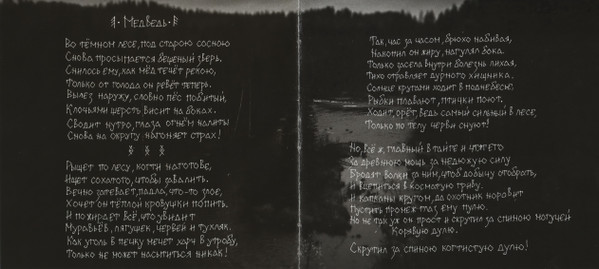 Медведь
Во тёмном лесе, под старою сосною
Снова просыпается бешеный зверь.
Снилось ему, как мёд течёт рекою,
Только от голода он ревёт теперь.
Вылез наружу, словно пёс побитый,
Клочьями шерсть висит на боках.
Сводит нутро, глаза огнём налиты
Снова на округу нагоняет страх!
Рыщет по лесу, когти наготове,
Ищет сохатого, чтобы завалить.
Вечно затевает, падла, что-то злое,
Хочет он тёплой кровушки попить.
И пожирает всё, что увидит
Муравьёв, лягушек, червей и тухляк.
Как уголь в печку мечет харч в утробу,
Только не может насытиться никак!
Так, час за часом, брюхо набивая,
Накопил он жиру, нагулял бока.
Только засела внутри болезнь лихая,
Тихо отравляет дурного хищника.
Солнце кругами ходит в поднебесье,
Рыбки плавают, птички поют.
Ходит, орёт, ведь самый сильный в лесе,
Только по телу черви снуют!
Но, всё ж, главный в тайге и
За древнюю мощь за недюжую силу
Бродят волки за ним, чтоб добычу отобрать,
И вцепиться в косматую гриву.
И капканы кругом, да охотник норовит
Пустить промеж глаз ему пулю.
Но не так уж он прост и скрутил за спиною могучей
Корявую дулю.
Скрутил за спиною когтистую дулю!